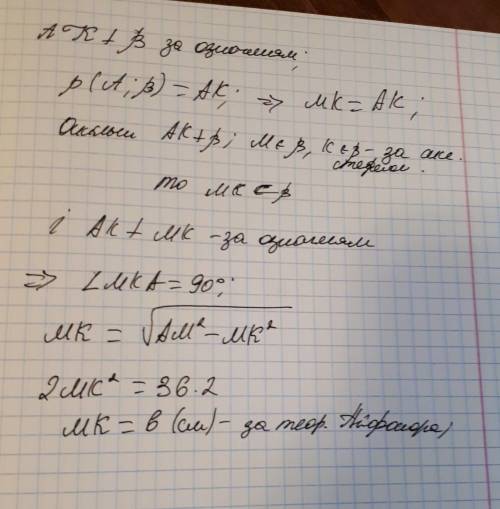 AK ⊥ β за ознакою;
ρ(A; β) = AK; ⇒ MK = AK;
Оскільки AK ⊥ β; M ∈ β, K ∈ β - за акс.
стереом.
то MK ⊂ β
і AK ⊥ MK - за ознакою
⇒ ∠MKA = 90°;
MK = √AM² - MK²
2MK² = 36·2
MK = 6 (см) - за теор. Піфагора)